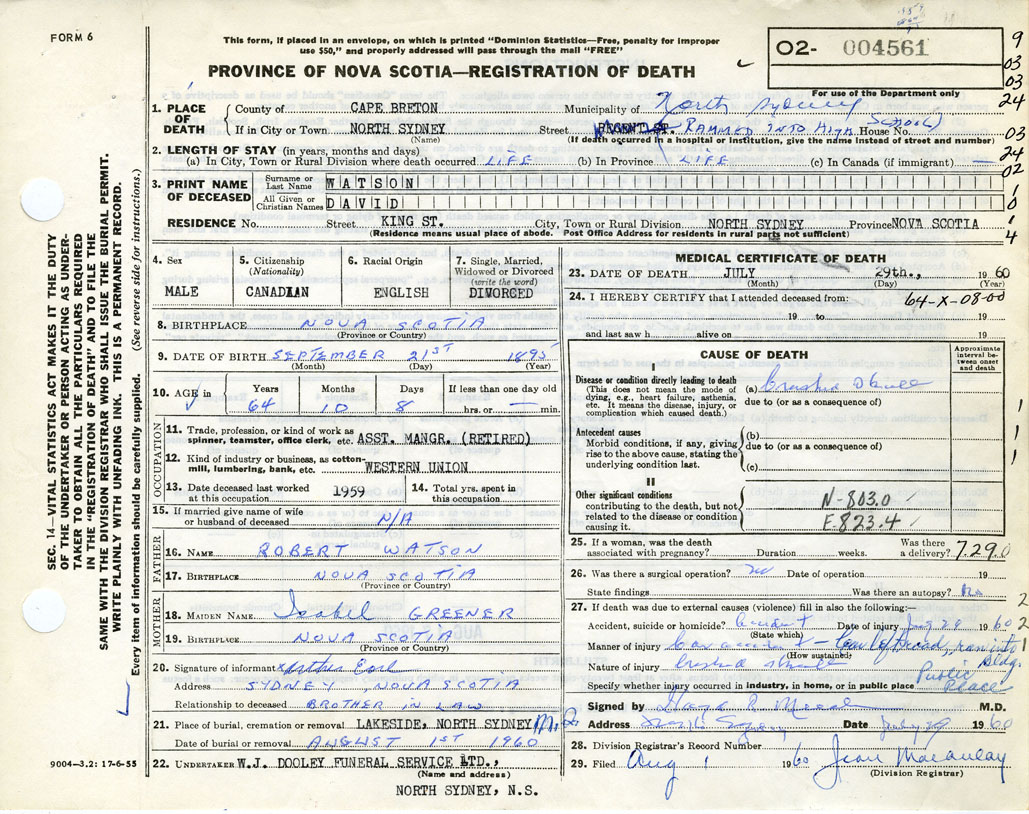 FORM 6
This form, if placed in an envelope, on which is printed "Dominion Statistics—Free, penalty for improper
use $50," and properly addressed will pass through the mail "FREE"
PROVINCE OF NOVA SCOTIA—REGISTRATION OF DEATH
O2- 004561
For use of the Department only
9
03
03
24
03
24
02
1
0
1
4
1. PLACE OF DEATH
County of CAPE BRETON Municipality of North Sydney
If in City or Town NORTH SYDNEY Street REGENT ST. RAMMED INTO HIGH SCHOOL) House No.
(Name) (If death occurred in a hospital or institution, give the name instead of street and number)
2. LENGTH OF STAY (in years, months and days)
(a) In City, Town or Rural Division where death occurred LIFE (b) In Province LIFE (c) In Canada (if immigrant) —
3. PRINT NAME OF DECEASED
Surname or Last Name WATSON
All Given or Christian Names DAVID
RESIDENCE No. Street KING ST. City, Town or Rural Division NORTH SYDNEY Province NOVA SCOTIA
(Residence means usual place of abode. Post Office Address for residents in rural parts not sufficient)
4. Sex
MALE
5. Citizenship
(Nationality)
CANADIAN
6. Racial Origin
ENGLISH
7. Single, Married,
Widowed or Divorced
(write the word)
DIVORCED
8. BIRTHPLACE NOVA SCOTIA
(Province or Country)
9. DATE OF BIRTH SEPTEMBER 21ST 1895
(Month) (Day) (Year)
10. AGE Years 64 Months 10 Days 8 If less than one day old hrs. or — min.
OCCUPATION
11. Trade, profession, or kind of work as
spinner, teamster, office clerk, etc. ASST. MANGR. (RETIRED)
12. Kind of industry or business, as cotton-
mill, lumbering, bank, etc. WESTERN UNION
13. Date deceased last worked
at this occupation 1959
14. Total yrs. spent in
this occupation
15. If married give name of wife
or husband of deceased N/A
FATHER
16. NAME ROBERT WATSON
17. BIRTHPLACE NOVA SCOTIA
(Province or Country)
MOTHER
18. MAIDEN NAME Isabel GREENER
19. BIRTHPLACE NOVA SCOTIA
(Province or Country)
20. Signature of informant
Address SYDNEY NOVA SCOTIA
Relationship to deceased BROTHER IN LAW
21. Place of burial, cremation or removal LAKESIDE, NORTH SYDNEY
Date of burial or removal AUGUST 1ST 1960
22. UNDERTAKER W.J. DOOLEY FUNERAL SERVICE LTD.,
(Name and address)
NORTH SYDNEY, N.S.
MEDICAL CERTIFICATE OF DEATH
23. DATE OF DEATH JULY 29th., 1960
(Month) (Day) (Year)
24. I HEREBY CERTIFY that I attended deceased from: 64-X-08-00
19 to 19
and last saw h alive on 19
CAUSE OF DEATH
Approximate
interval be-
tween onset
and death
I
Disease or condition directly leading to death
(This does not mean the mode of
dying, e.g., heart failure, asthenia,
etc. It means the disease, injury, or
complication which caused death.)
(a) Crushed Skull
due to (or as a consequence of)
Antecedent causes
Morbid conditions, if any, giving
rise to the above cause, stating the
underlying condition last.
(b)
due to (or as a consequence of)
(c)
II
Other significant conditions
contributing to the death, but not
related to the disease or condition
causing it.
N-803.0
E.823.4
1
1
1
25. If a woman, was the death
associated with pregnancy? Duration weeks. Was there
a delivery? 7.290
26. Was there a surgical operation? no Date of operation 19
State findings Was there an autopsy? No
27. If death was due to external causes (violence) fill in also the following:—
Accident, suicide or homicide? Accident Date of injury July 29 1960
(State which)
Manner of injury Car accident – ran off road, ran into Bldg.
(How sustained)
Nature of injury Crushed skull
Specify whether injury occurred in industry, in home, or in public place Public Place
2
2
1
Signed by M.D.
Address North Sydney Date July 29 1960
28. Division Registrar's Record Number
29. Filed Aug 1 1960 Jean Macaulay
(Division Registrar)
SEC. 14—VITAL STATISTICS ACT MAKES IT THE DUTY
OF THE UNDERTAKER OR PERSON ACTING AS UNDER-
TAKER TO OBTAIN ALL THE PARTICULARS REQUIRED
IN THE "REGISTRATION OF DEATH" AND TO FILE THE
SAME WITH THE DIVISION REGISTRAR WHO SHALL ISSUE THE BURIAL PERMIT.
WRITE PLAINLY WITH UNFADING INK. THIS IS A PERMANENT RECORD.
Every item of information should be carefully supplied. (See reverse side for instructions.)
9004—3.2: 17-6-55